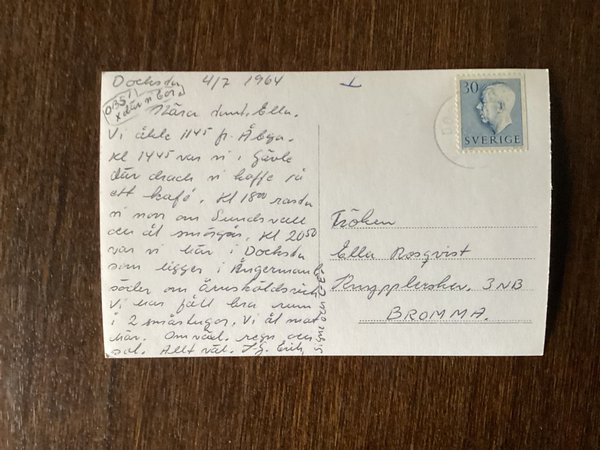 Docksta 4/7 1964
OBS!
x där vi bor
Kära tant Ella.
Vi åkte 1145 fr. Åbga.
Kl 1445 var vi i Gävle
där drack vi kaffe på
ett kafé. Kl 18⁰⁰ rastade
vi norr om Sundsvall
och åt smörgås. Kl 20⁵⁰
var vi här i Docksta
som ligger i Ångermanl.
söder om Örnsköldsvik
Vi har fått bra rum
i 2 småstugor. Vi åt mat
här. Omväxl. regn och
sol. Allt väl. Erik
Signe och
30
SVERIGE
Fröken
Ella Rosqvist
3 NB
BROMMA.